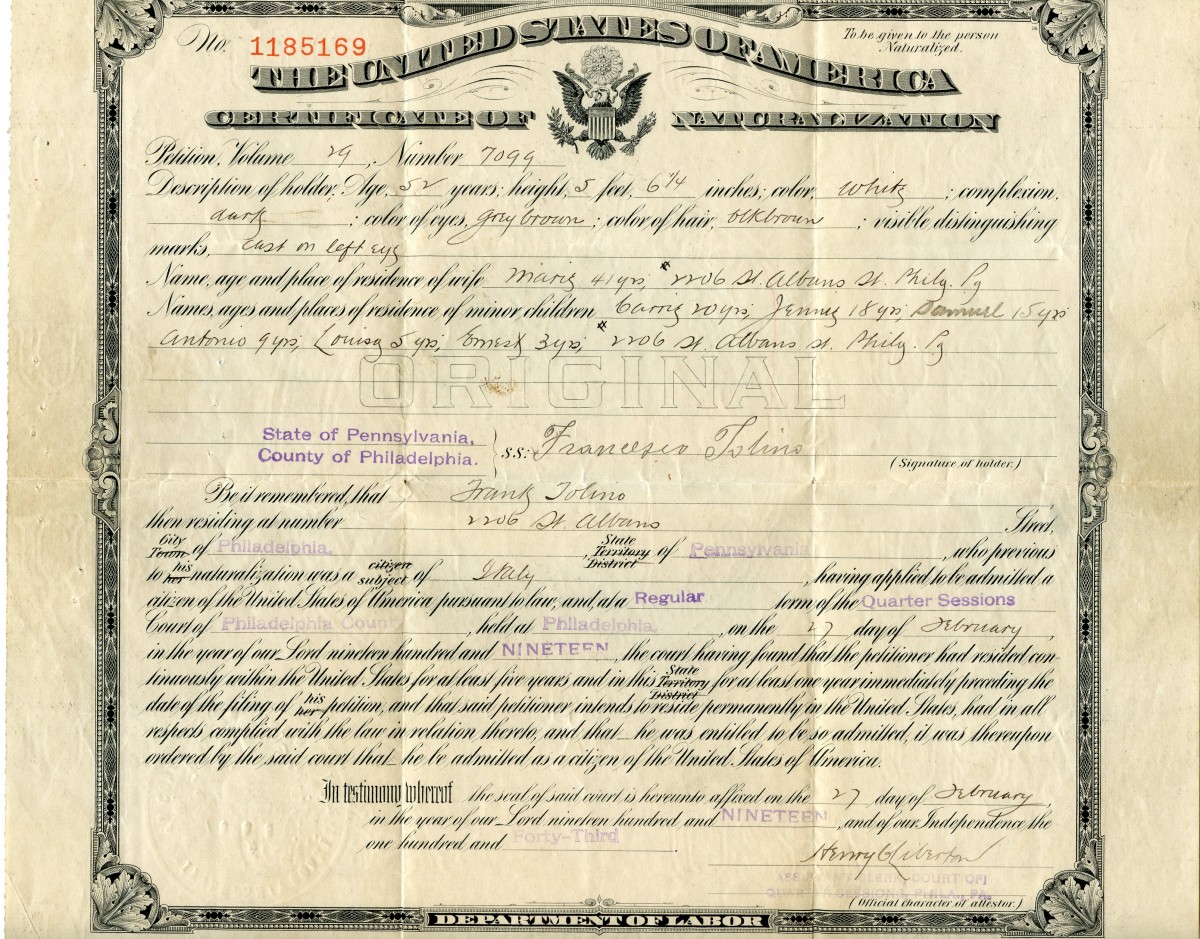 No. 1185169
To be given to the person Naturalized.
THE UNITED STATES OF AMERICA
CERTIFICATE OF NATURALIZATION
Petition, Volume 29, Number 7099
Description of holder: Age, 52 years; height, 5 feet, 6 1/4 inches; color, White; complexion,
dark; color of eyes, grey brown; color of hair, blk brown; visible distinguishing
marks, Cast on left eye
Name, age and place of residence of wife Marie 41 yrs, # 2206 St. Albans St. Phila. Pa
Names, ages and places of residence of minor children Carrie 20 yrs, Jennie 18 yrs, Samuel 15 yrs
Antonio 9 yrs, Louisa 5 yrs, Ernest 3 yrs, # 2206 St. Albans St. Phila. Pa
ORIGINAL
State of Pennsylvania,
County of Philadelphia. } S.S: Francesco Tolino
(Signature of holder.)
Be it remembered, that Frank Tolino
then residing at number 2206 St. Albans Street,
City Town of Philadelphia, State Territory District of Pennsylvania, who previous
to his her naturalization was a citizen subject of Italy, having applied to be admitted a
citizen of the United States of America pursuant to law, and, at a Regular term of the Quarter Sessions
Court of Philadelphia County, held at Philadelphia, on the 27 day of February,
in the year of our Lord nineteen hundred and NINETEEN, the court having found that the petitioner had resided con-
tinuously within the United States for at least five years and in this State Territory District for at least one year immediately preceding the
date of the filing of his her petition, and that said petitioner intends to reside permanently in the United States, had in all
respects complied with the law in relation thereto, and that he was entitled to be so admitted, it was thereupon
ordered by the said court that he be admitted as a citizen of the United States of America.
In testimony whereof the seal of said court is hereunto affixed on the 27 day of February,
in the year of our Lord nineteen hundred and NINETEEN, and of our Independence the
one hundred and Forty-Third
Henry
ASSISTANT CLERK, COURT OF
QUARTER SESSIONS, PHILA., PA.
(Official character of attestor.)
DEPARTMENT OF LABOR